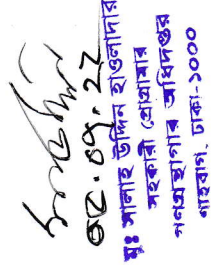 ০৫.০৭.২২
মুঃ সালাহ উদ্দিন হাওলাদার
সহকারী প্রোগ্রামার
গণগ্রন্থাগার অধিদপ্তর
শাহবাগ, ঢাকা-১০০০